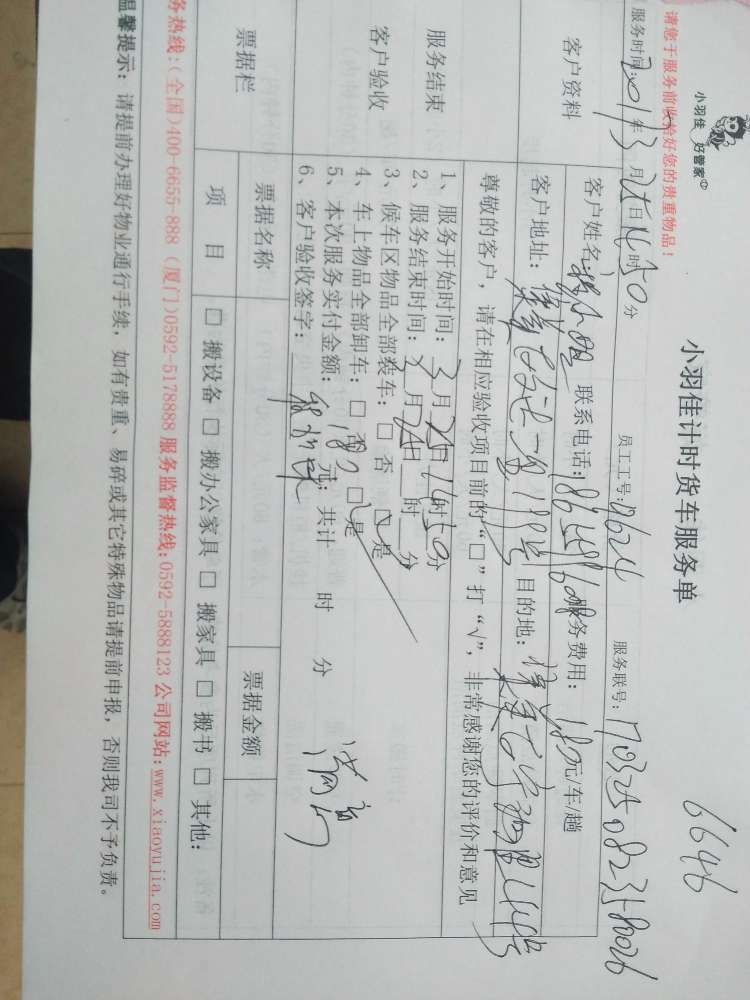 小羽佳 好管家
小羽佳计时货车服务单
6646
请您于服务前收拾好您的贵重物品！
服务时间: 2017年3月25日16时50分 员工工号: 0624 服务联号: 170325082358026
客户资料
客户姓名: 小姐 联系电话: 服务费用: 元/车/趟
客户地址: 目的地:
尊敬的客户，请在相应验收项目前的“□”打“√”，非常感谢您的评价和意见
服务结束
客户验收
1、服务开始时间: 3月25日16时50分
2、服务结束时间: 3月25日 时 分
3、候车区物品全部装车: □ 否 □ 是
4、车上物品全部卸车: □ 否 □ 是
5、本次服务实付金额: 元; 共计 时 分
6、客户验收签字: 满意
票据栏
票据名称 票据金额
项 目 □ 搬设备 □ 搬办公家具 □ 搬家具 □ 搬书 □ 其他:
务热线:(全国)400-6655-888 (厦门)0592-5178888 服务监督热线:0592-5888123 公司网站:www.xiaoyujia.com
温馨提示: 请提前办理好物业通行手续，如有贵重、易碎或其它特殊物品请提前申报，否则我司不予负责。